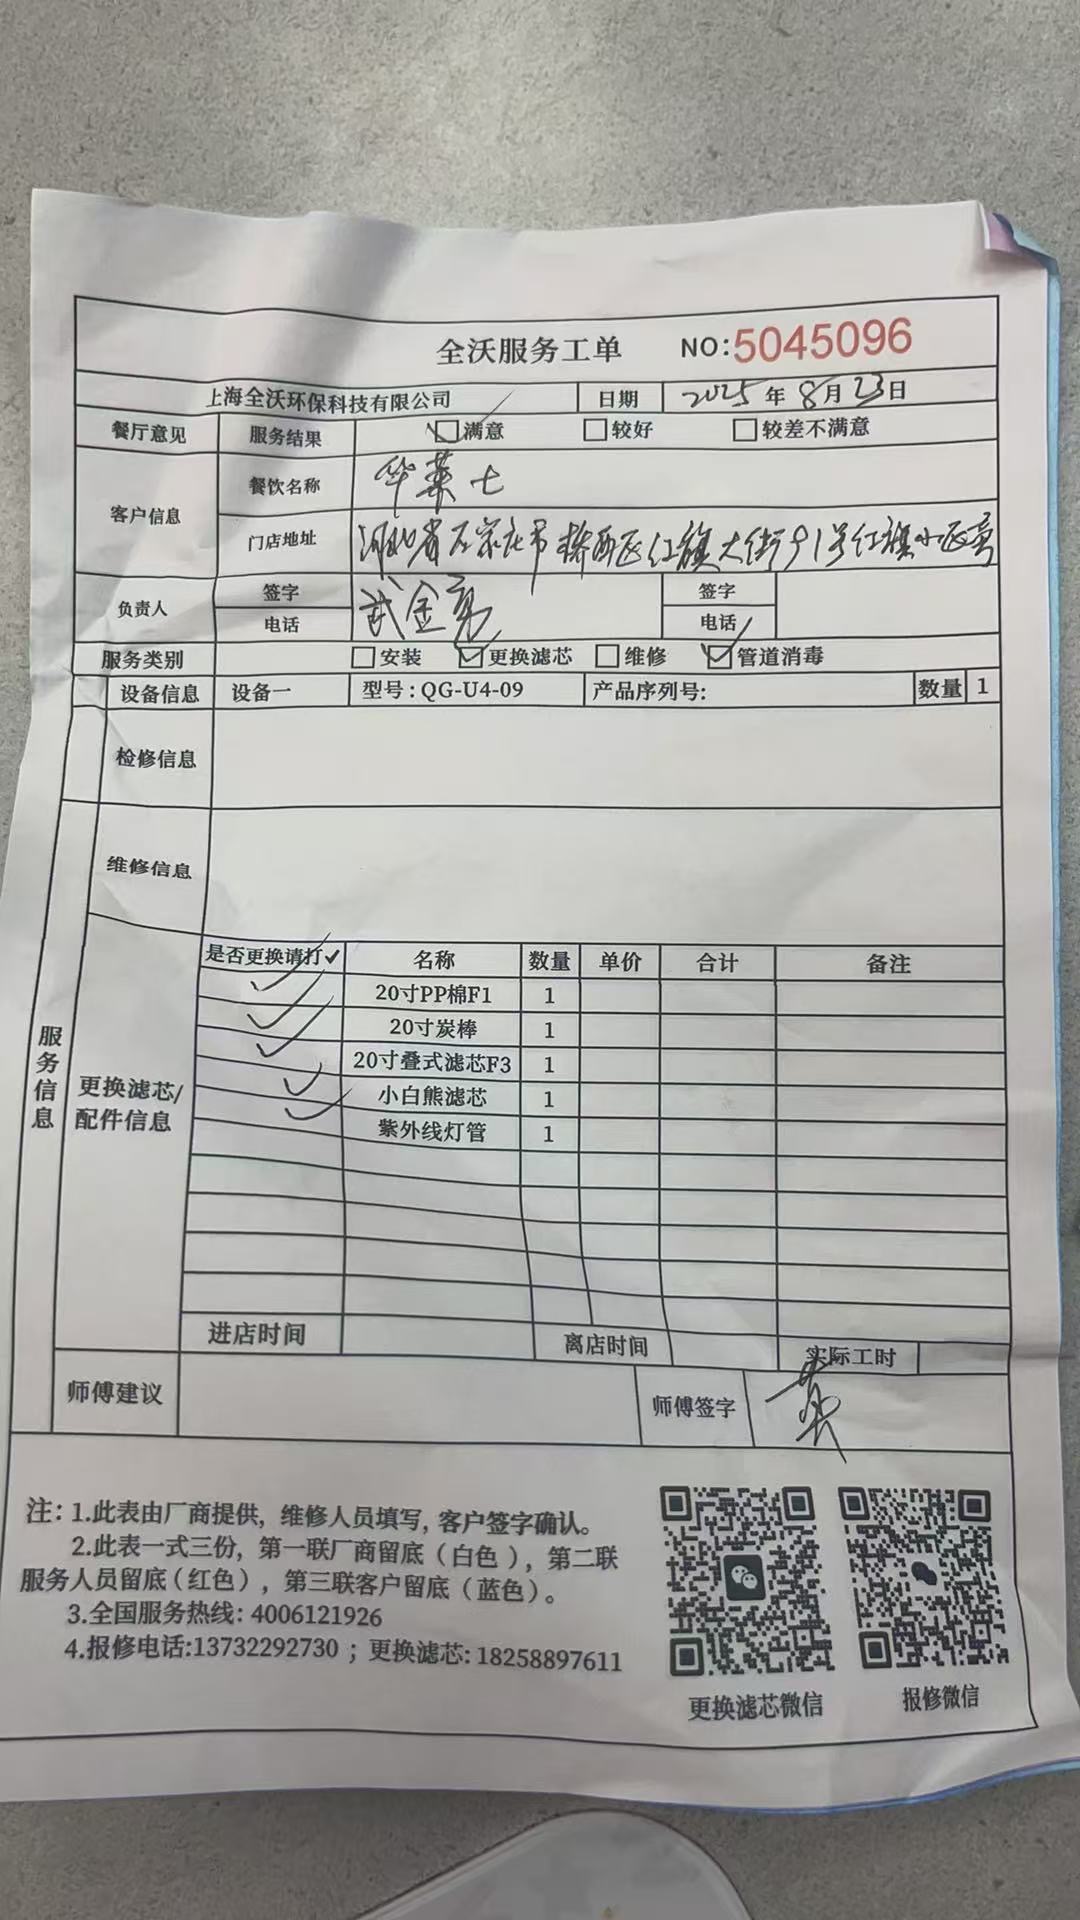 全沃服务工单 NO:5045096
上海全沃环保科技有限公司 日期 2025年8月23日
餐厅意见 服务结果 满意 较好 较差不满意
客户信息 餐饮名称 华莱士
门店地址 河北省石家庄市桥西区红旗大街91号红旗小区旁
负责人 签字 武金亮 签字
电话 电话
服务类别 安装 更换滤芯 维修 管道消毒
设备信息 设备一 型号:QG-U4-09 产品序列号: 数量 1
检修信息
维修信息
服务信息
更换滤芯/配件信息
是否更换请打✓ 名称 数量 单价 合计 备注
✓ 20寸PP棉F1 1
✓ 20寸炭棒 1
✓ 20寸叠式滤芯F3 1
✓ 小白熊滤芯 1
✓ 紫外线灯管 1
进店时间 离店时间 实际工时
师傅建议 师傅签字
注: 1.此表由厂商提供, 维修人员填写, 客户签字确认。
2.此表一式三份, 第一联厂商留底(白色), 第二联
服务人员留底(红色), 第三联客户留底(蓝色)。
3.全国服务热线: 4006121926
4.报修电话:13732292730 ; 更换滤芯: 18258897611
更换滤芯微信 报修微信